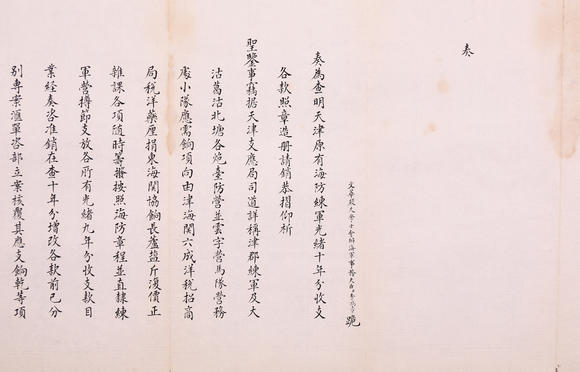 奏
文華殿大學士會辦海軍事務大臣 跪
奏為查明天津原有海防練軍光緒十年分收支
各款照章造册請銷恭摺仰祈
聖鑒事竊据天津支應局司道詳稱津郡練軍及大
沽葛沽北塘各炮臺防營並雲字營馬隊營務
處小隊應需餉項向由津海關六成洋税招商
局税洋藥厘捐東海關協餉長蘆鹽斤復價正
雜課各項随時籌撥按照海防章程並直隸練
軍營撙節支放各所有光緒九年分收支款目
業經奏咨准銷在查十年分增改各款前已分
别專案滙單咨部立案核覆其應支餉乾等項